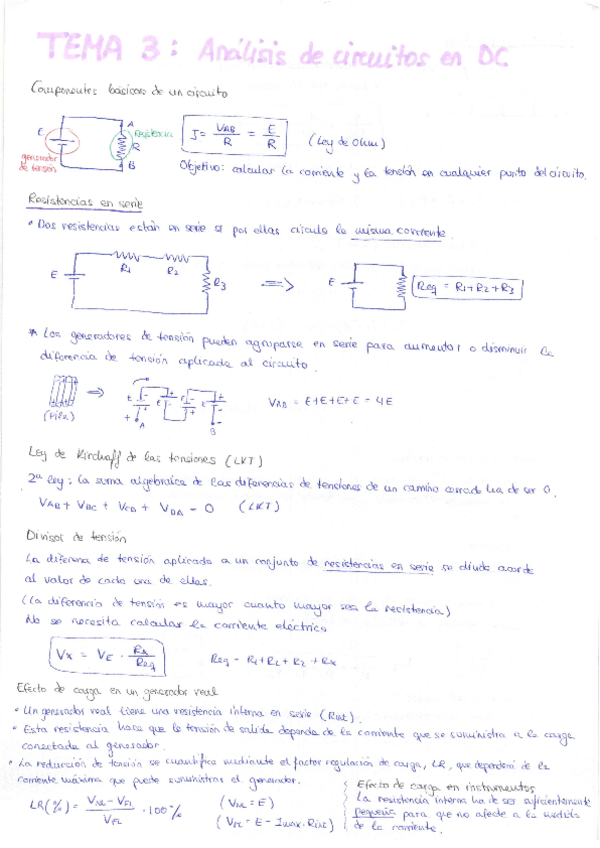 TEMA 3: Análisis de circuitos en DC
Componentes básicos de un circuito
E
A
Resistencia
R
B
generador de tensión
I = VAB/R = E/R
(Ley de Ohm)
Objetivo: calcular la corriente y la tensión en cualquier punto del circuito.
Resistencias en serie
• Dos resistencias están en serie si por ellas circula la misma corriente.
E R1 R2 R3 => E Req = R1+R2+R3
* Los generadores de tensión pueden agruparse en serie para aumentar o disminuir la
diferencia de tensión aplicada al circuito.
(Pila) => E E E E A B
VAB = E+E+E+E = 4E
Ley de Kirchoff de las tensiones (LKT)
2ª ley: la suma algebraica de las diferencias de tensiones de un camino cerrado ha de ser 0.
VAB + VBC + VCD + VDA = 0 (LKT)
Divisor de tensión
La diferencia de tensión aplicada a un conjunto de resistencias en serie se divide acorde
al valor de cada una de ellas.
(la diferencia de tensión es mayor cuanto mayor sea la resistencia)
No se necesita calcular la corriente eléctrica
Vx = VE · Rx/Req
Req = R1+R2+R2+Rx
Efecto de carga en un generador real
• Un generador real tiene una resistencia interna en serie (Rint).
• Esta resistencia hace que la tensión de salida dependa de la corriente que se suministra a la carga
conectada al generador.
• La reducción de tensión se cuantifica mediante el factor regulación de carga, LR, que dependerá de la
corriente máxima que puede suministrar el generador.
LR(%) = VNL - VFL / VFL · 100%
(VNL = E)
(VFL = E - Imax · Rint)
Efecto de carga en instrumentos
La resistencia interna ha de ser suficientemente
pequeña para que no afecte a la medida
de la corriente.